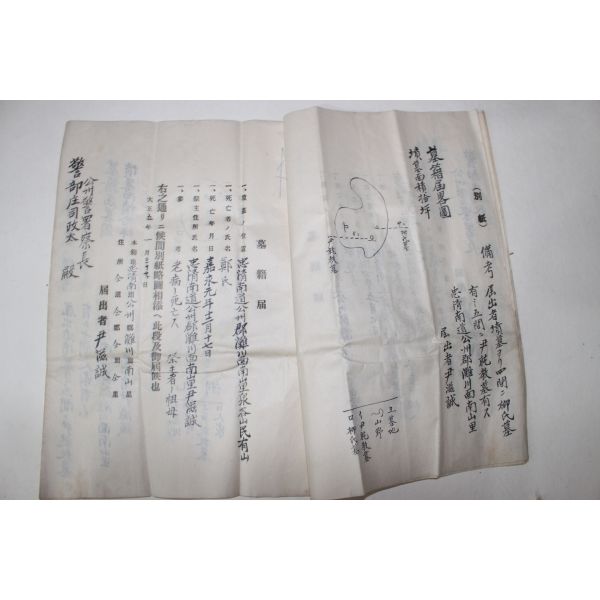 (別紙)
備考
届出者墳墓ヨリ四間ニ柳氏墓
有シ五間ニ尹氏数墓有ス
忠清南道公州郡灘川面南山里
届出者尹滋誠
墓籍届畧圖
墳墓面積拾坪
墓籍届
一、墳墓ノ位置 忠清南道公州郡灘川面南山里
民有山
一、死亡者ノ氏名 鄭氏
一、死亡年月日 嘉永元年十二月十七日
一、祭主住所氏名 忠清南道公州郡灘川面南山里尹滋誠
一、備考 老病ニ死亡ス 祭主者ノ祖母
右之通リニ候間別紙略圖相添ヘ此段及御届候也
大正九年一月二十 日
本籍地忠清南道公州郡灘川面南山里
住所仝道仝郡仝面仝里
届出者尹滋誠
公州警察署長
警部庄司政太殿